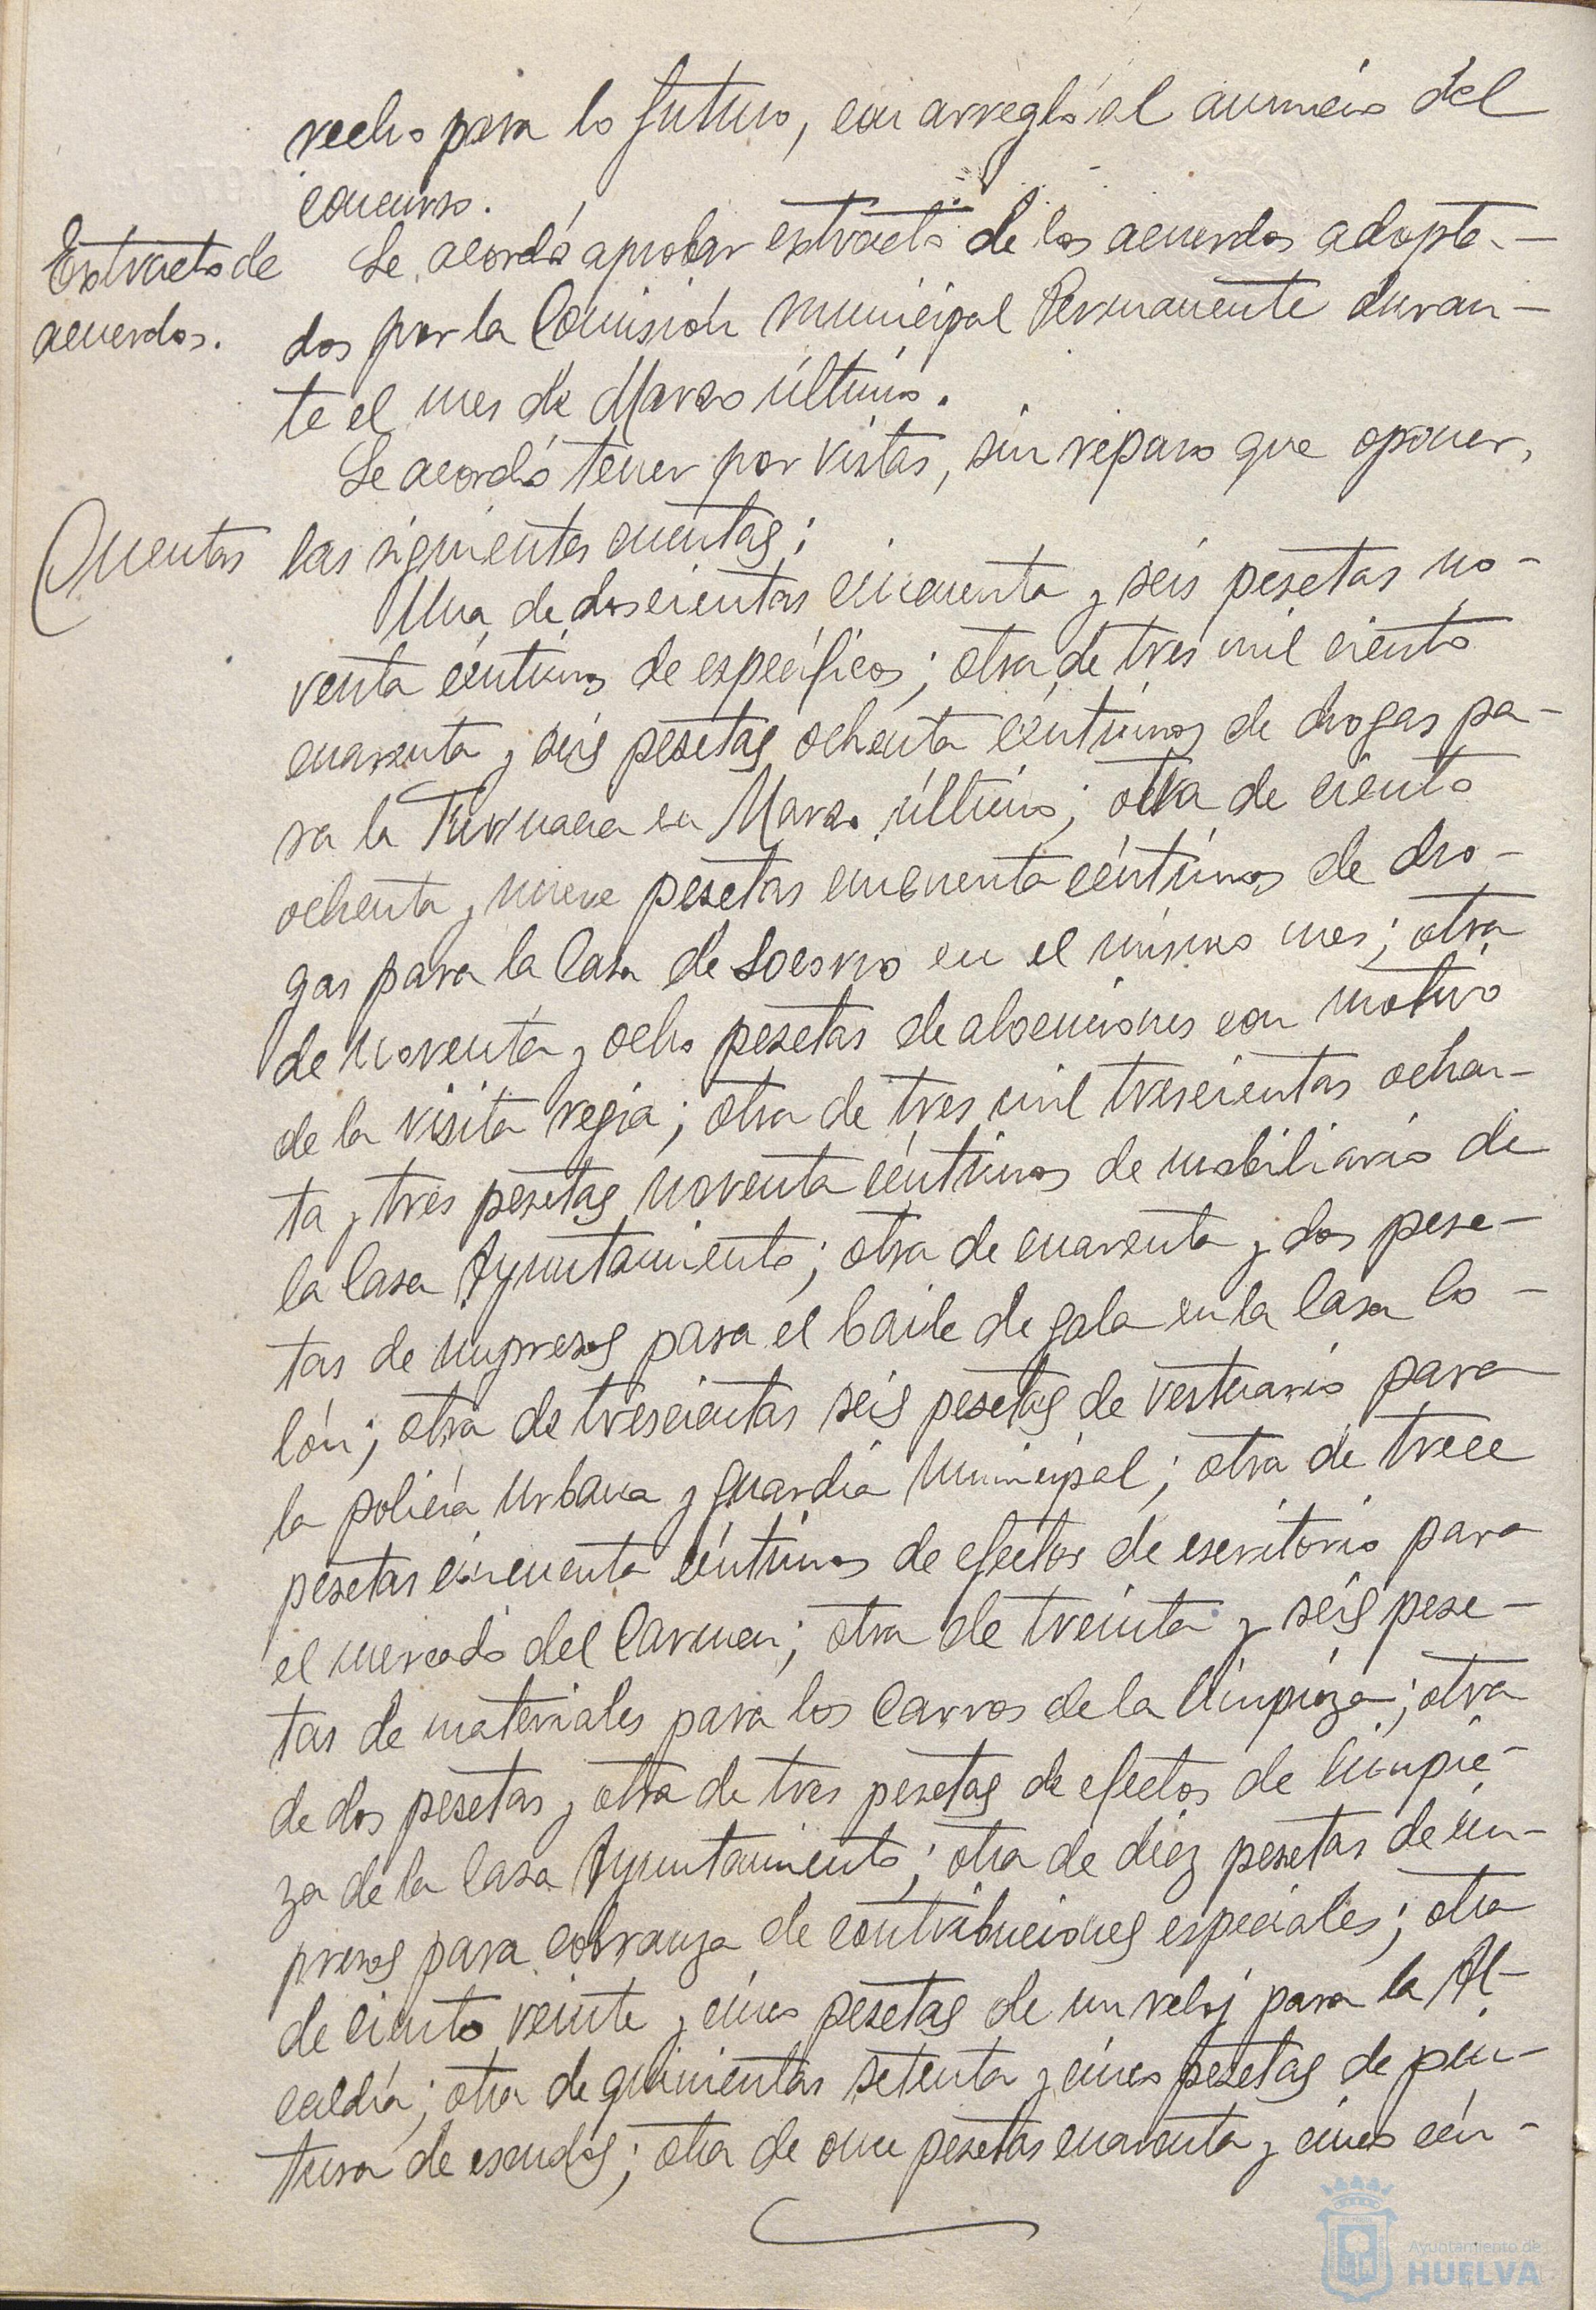 recho para lo futuro, con arreglo al anuncio del
concurso.
Extracto de
acuerdos.
Se acordó aprobar extracto de los acuerdos adopta-
dos por la Comisión municipal Permanente duran-
te el mes de Marzo último.
Se acordó tener por vistas, sin reparo que oponer,
Cuentas
las siguientes cuentas:
Una de doscientas cincuenta y seis pesetas no-
venta céntimos de específicos; otra de tres mil ciento
cuarenta y seis pesetas ochenta céntimos de drogas pa-
ra la Farmacia en Marzo último; otra de ciento
ochenta y nueve pesetas cincuenta céntimos de dro-
gas para la Casa de Socorro en el mismo mes; otra
de noventa y ocho pesetas de atenciones con motivo
de la visita regia; otra de tres mil trescientas ochen-
ta y tres pesetas noventa céntimos de mobiliario de
la Casa Ayuntamiento; otra de cuarenta y dos pese-
tas de impresos para el baile de gala en la Casa Co-
lón; otra de trescientas seis pesetas de vestuario para
la policía urbana y guardia municipal; otra de trece
pesetas cincuenta céntimos de efectos de escritorio para
el mercado del Carmen; otra de treinta y seis pese-
tas de materiales para los carros de la limpieza; otra
de dos pesetas y otra de tres pesetas de efectos de limpie-
za de la Casa Ayuntamiento; otra de diez pesetas de im-
presos para cobranza de contribuciones especiales; otra
de ciento veinte y cinco pesetas de un reloj para la Al-
caldía; otra de quinientas setenta y cinco pesetas de pin-
tura de escudos; otra de once pesetas cuarenta y cinco cén-
Ayuntamiento de
HUELVA